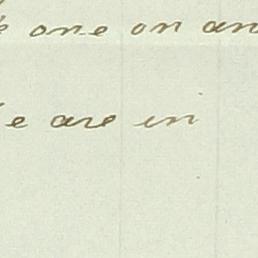 one on an
e are in